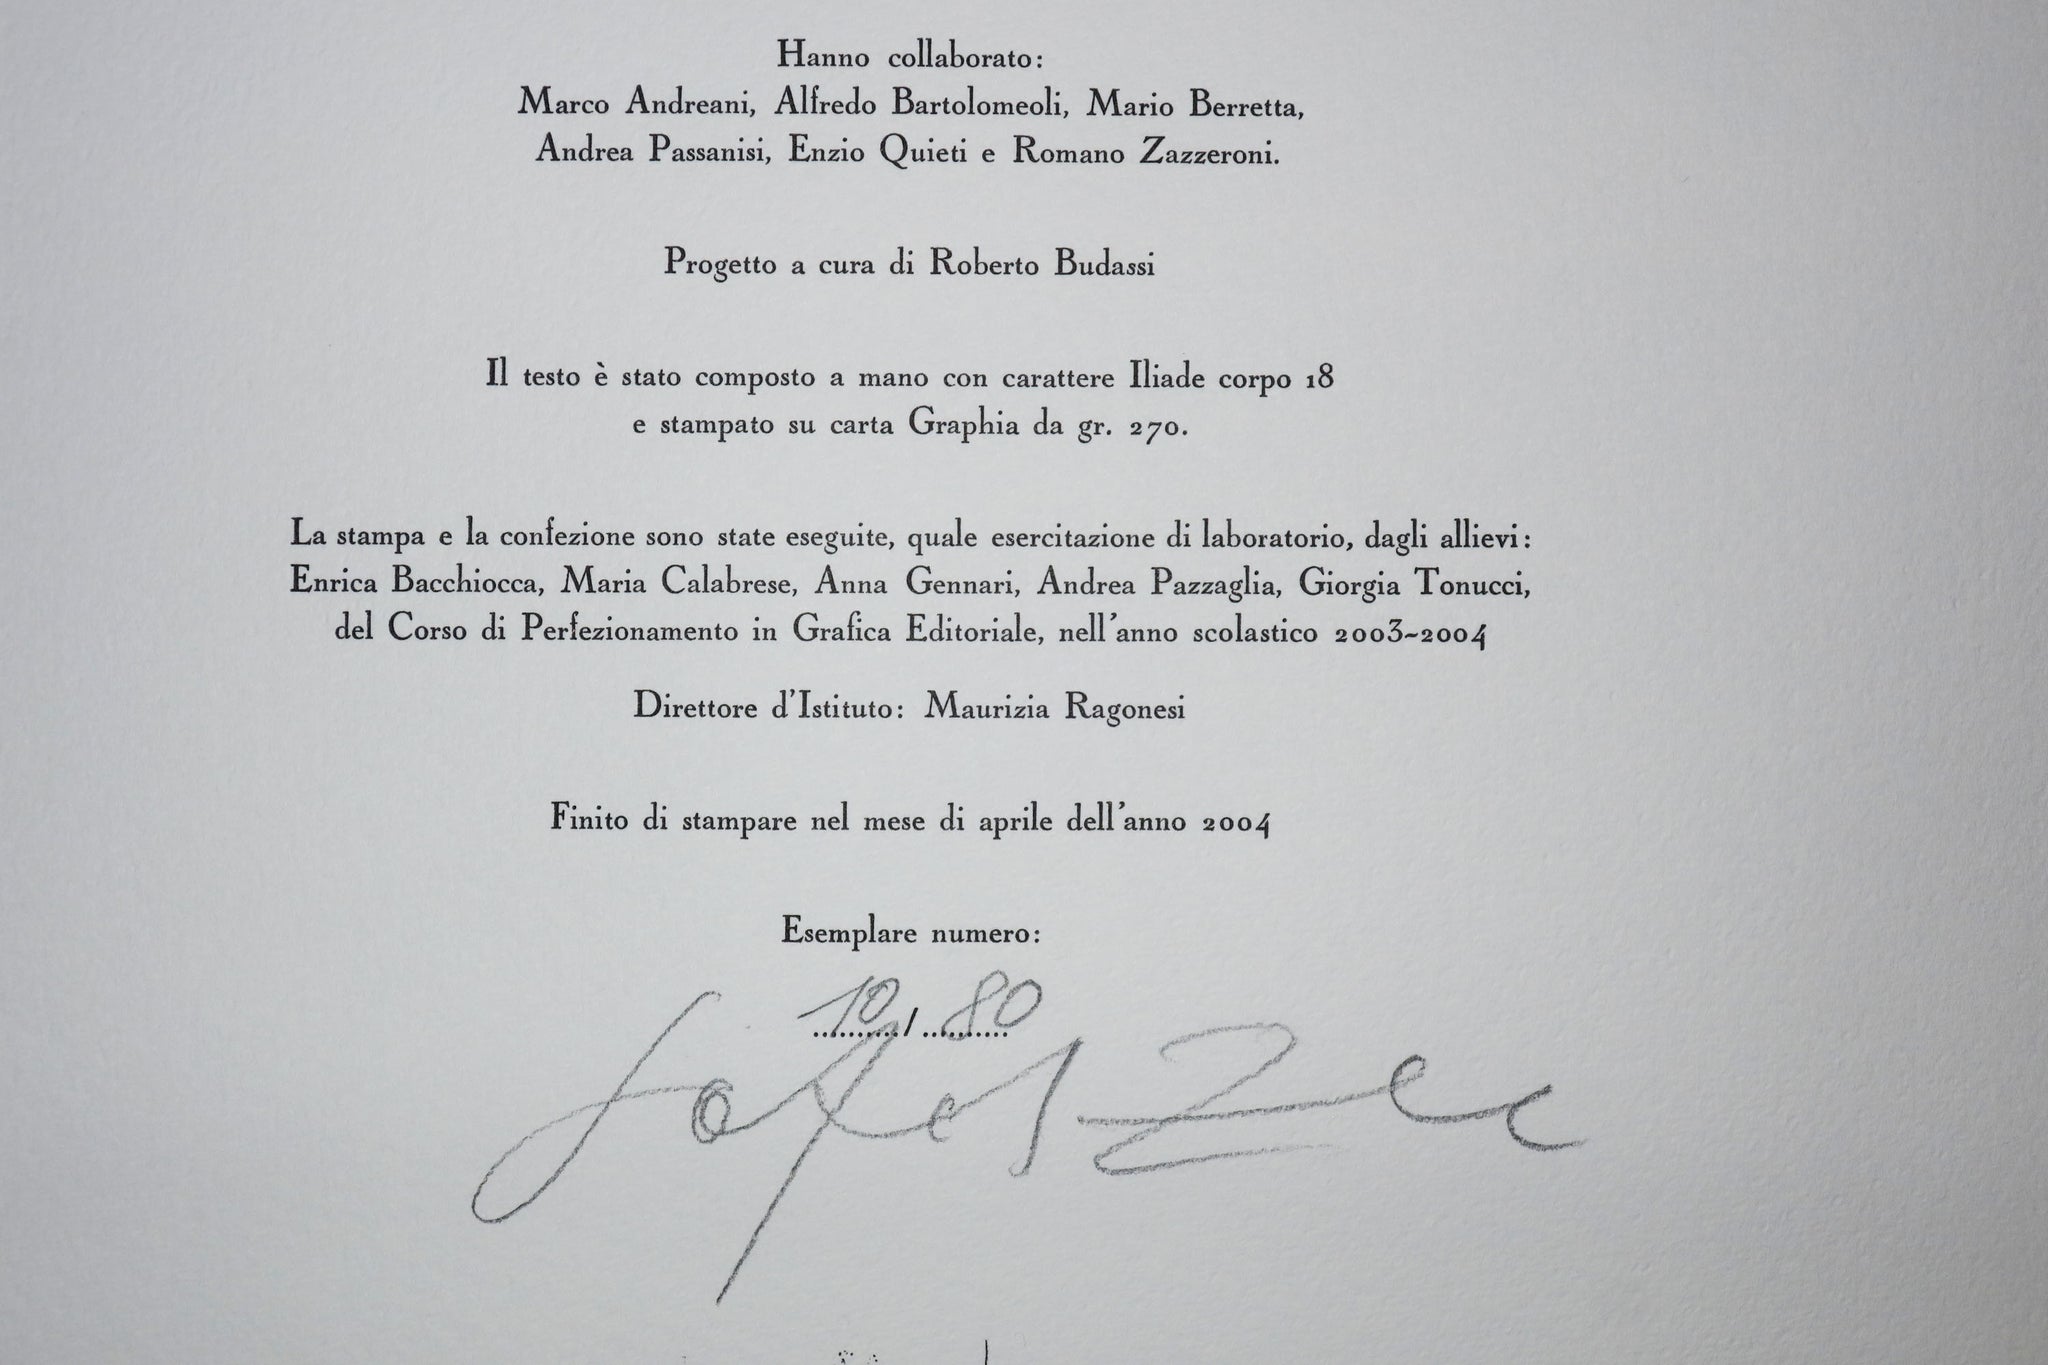 Hanno collaborato:
Marco Andreani, Alfredo Bartolomeoli, Mario Berretta,
Andrea Passanisi, Enzio Quieti e Romano Zazzeroni.
Progetto a cura di Roberto Budassi
Il testo è stato composto a mano con carattere Iliade corpo 18
e stampato su carta Graphia da gr. 270.
La stampa e la confezione sono state eseguite, quale esercitazione di laboratorio, dagli allievi:
Enrica Bacchiocca, Maria Calabrese, Anna Gennari, Andrea Pazzaglia, Giorgia Tonucci,
del Corso di Perfezionamento in Grafica Editoriale, nell'anno scolastico 2003~2004
Direttore d'Istituto: Maurizia Ragonesi
Finito di stampare nel mese di aprile dell'anno 2004
Esemplare numero:
10/80